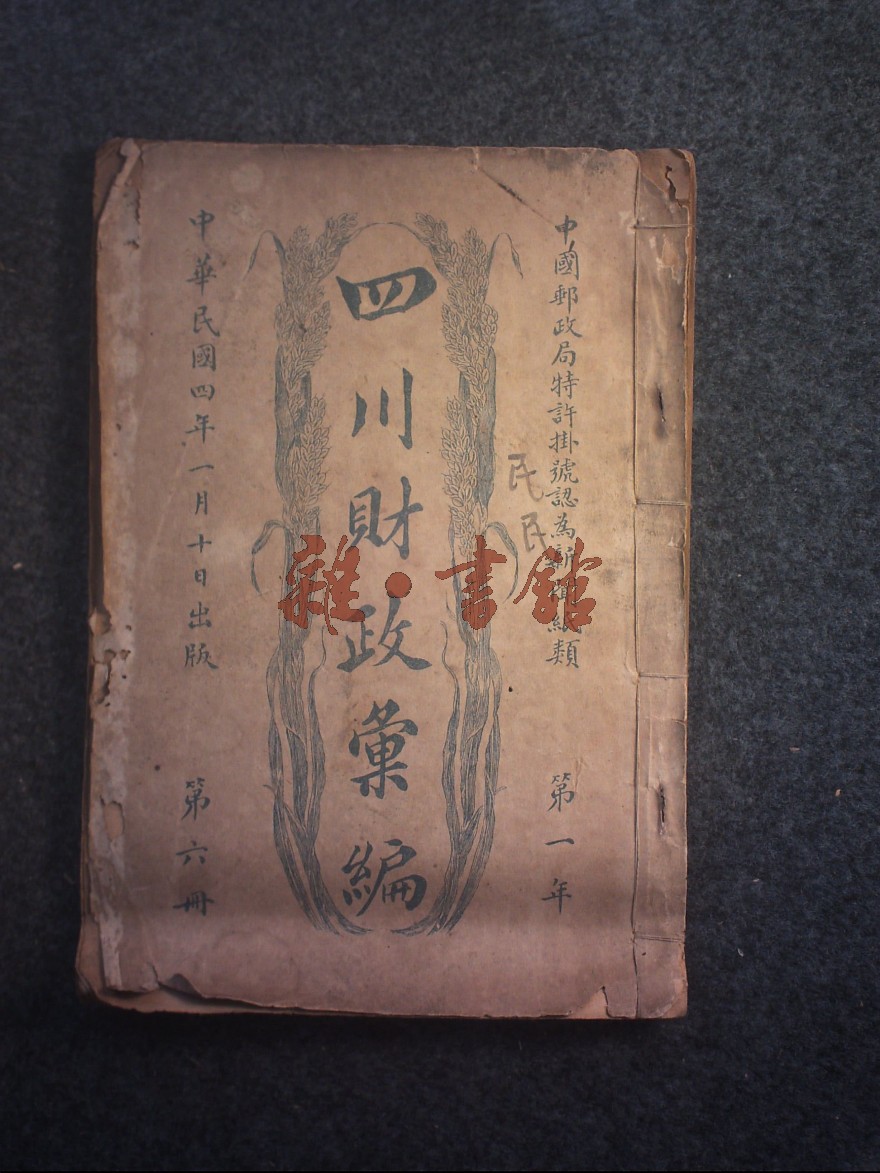 中國郵政局特許掛號認為新聞紙類
第一年
民民
四川財政彙編
中華民國四年一月十日出版
第六冊
雜·書館